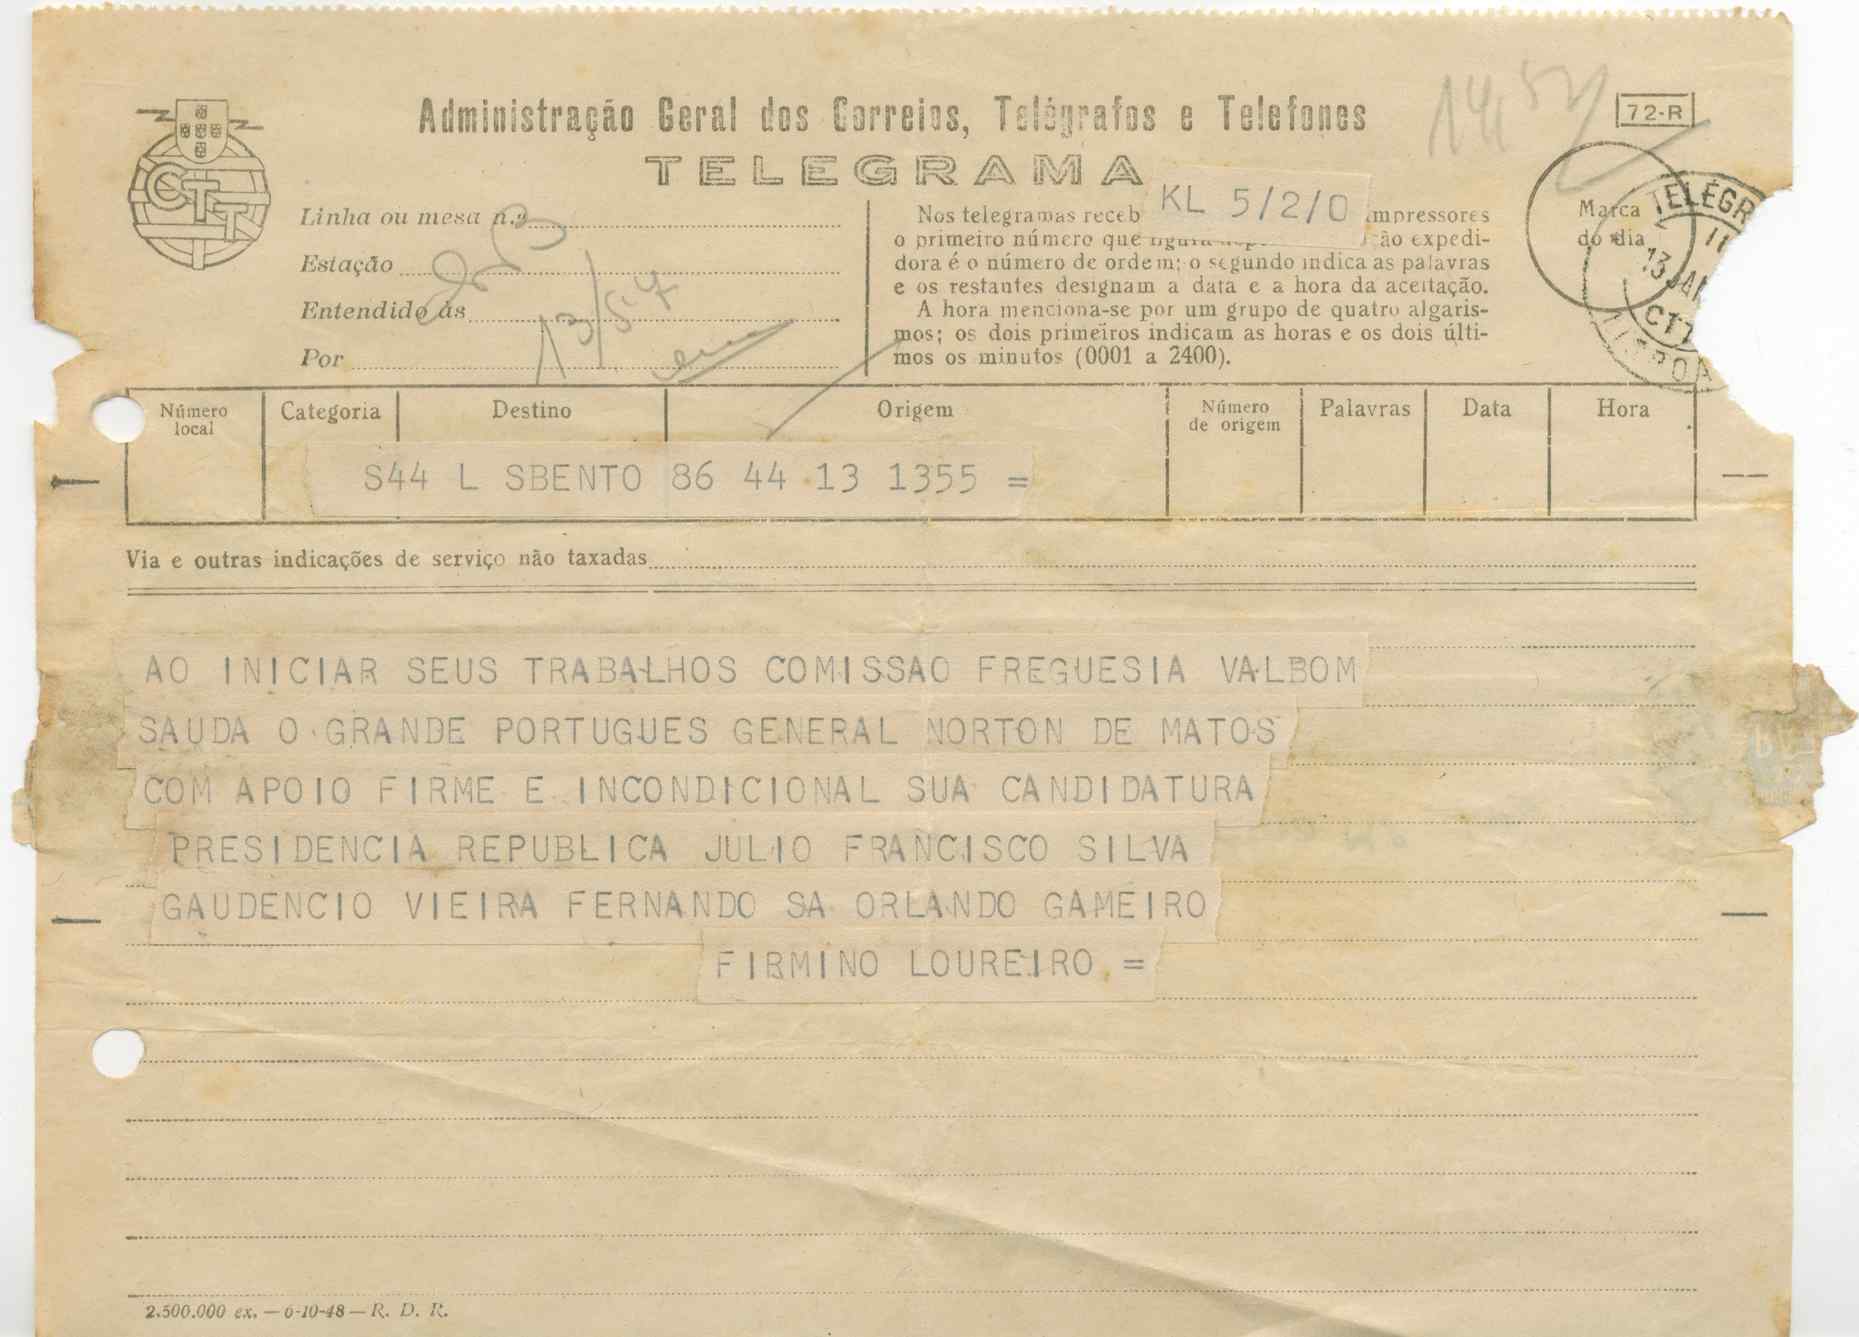 Administração Geral dos Correios, Telégrafos e Telefones
72-R
TELEGRAMA
CTT
KL 5/2/0
Linha ou mesa n.º
Estação
Entendido às
Por
13/54
Nos telegramas receb mpressores
o primeiro número que ão expedi-
dora é o número de ordem; o segundo indica as palavras
e os restantes designam a data e a hora da aceitação.
A hora menciona-se por um grupo de quatro algaris-
mos; os dois primeiros indicam as horas e os dois últi-
mos os minutos (0001 a 2400).
Marca
do dia
TELÉGR
13 JAN
CTT
LISBOA
Número local
Categoria
Destino
Origem
Número de origem
Palavras
Data
Hora
S44 L SBENTO 86 44 13 1355 =
Via e outras indicações de serviço não taxadas
AO INICIAR SEUS TRABALHOS COMISSAO FREGUESIA VALBOM
SAUDA O GRANDE PORTUGUES GENERAL NORTON DE MATOS
COM APOIO FIRME E INCONDICIONAL SUA CANDIDATURA
PRESIDENCIA REPUBLICA JULIO FRANCISCO SILVA
GAUDENCIO VIEIRA FERNANDO SA ORLANDO GAMEIRO
FIRMINO LOUREIRO =
2.500.000 ex. — 6-10-48 — R. D. R.